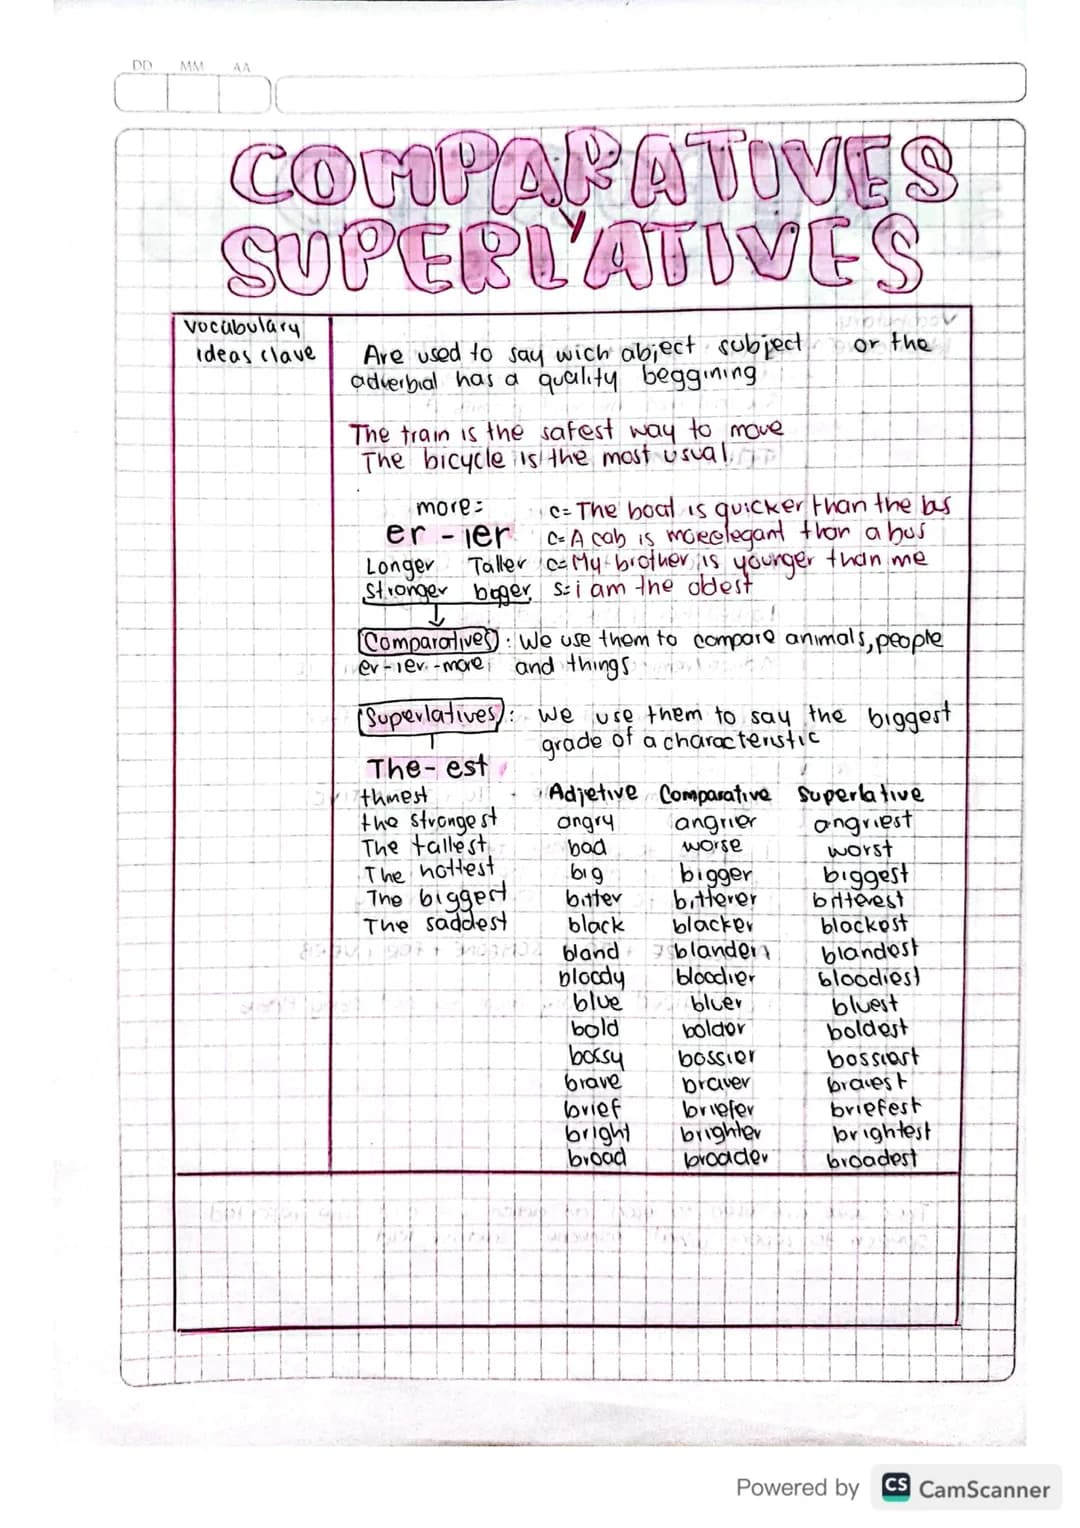 DD MM AA
COMPARATIVES
Y
SUPERLATIVES
vocabulary
ideas clave
Are used to say wich abject subject or the
adverbial has a quality beggining
The train is the safest way to move
The bicycle is the most usual
more:
er - ier
Longer Taller
Stronger bigger
c= The boat is quicker than the bus
c= A cab is more elegant than a bus
c= My brother is younger than me
s= i am the oldest
Comparatives: We use them to compare animals, people
er-ier-more and things
Superlatives: we use them to say the biggest
grade of a characteristic
The-est
the strongest
The tallest
The hottest
The biggest
The saddest
Adjetive Comparative Superlative
angry angrier angriest
bad worse worst
big bigger biggest
bitter bitterer bitterest
black blacker blackest
bland blander blandest
bloody bloodier bloodiest
blue bluer bluest
bold bolder boldest
bossy bossier bossiest
brave braver bravest
brief briefer briefest
bright brighter brightest
broad broader broadest
Powered by CS CamScanner